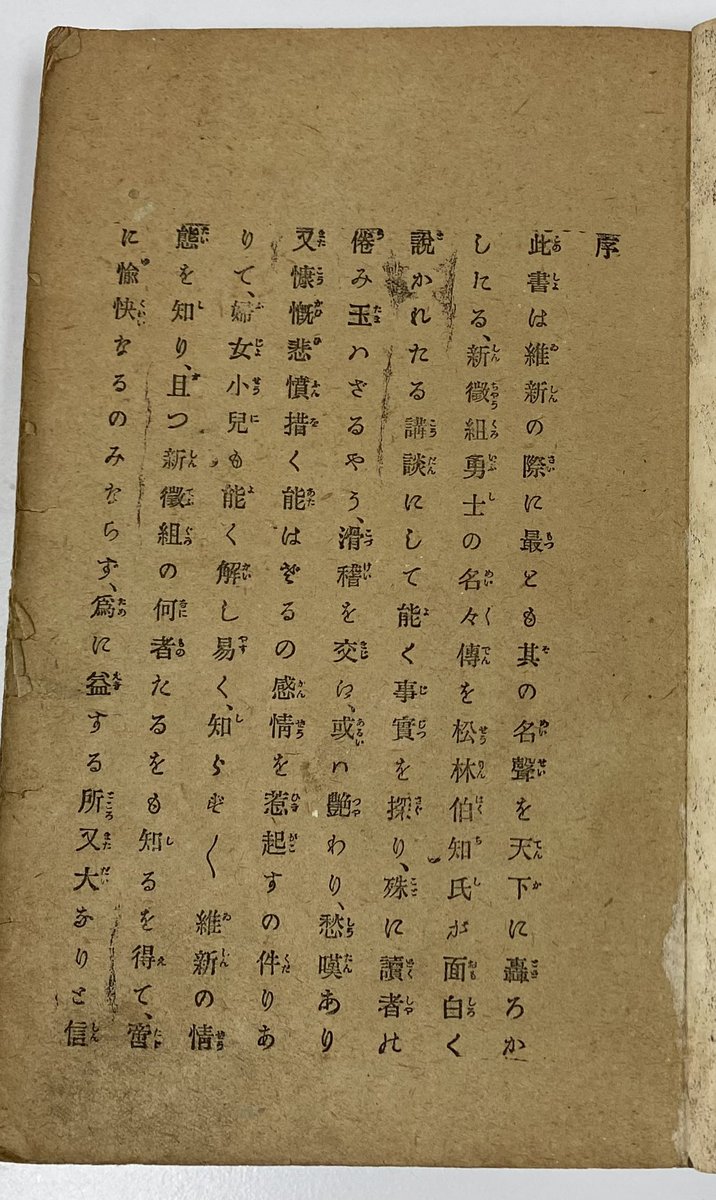 序
此書は維新の際に最とも其の名聲を天下に轟ろか
したる、新徵組勇士の名々傳を松林伯知氏が面白く
說かれたる講談にして能く事實を探り、殊に讀者の
倦み玉ハざるやう、滑稽を交に、或ハ艷わり、愁嘆あり
又慷慨悲憤措く能はざるの感情を惹起すの件りあ
りて、婦女小兒も能く解し易く、知らず〱維新の情
態を知り、且つ新徵組の何者たるをも知るを得て、啻
に愉快なるのみならず、爲に益する所又大なりと信